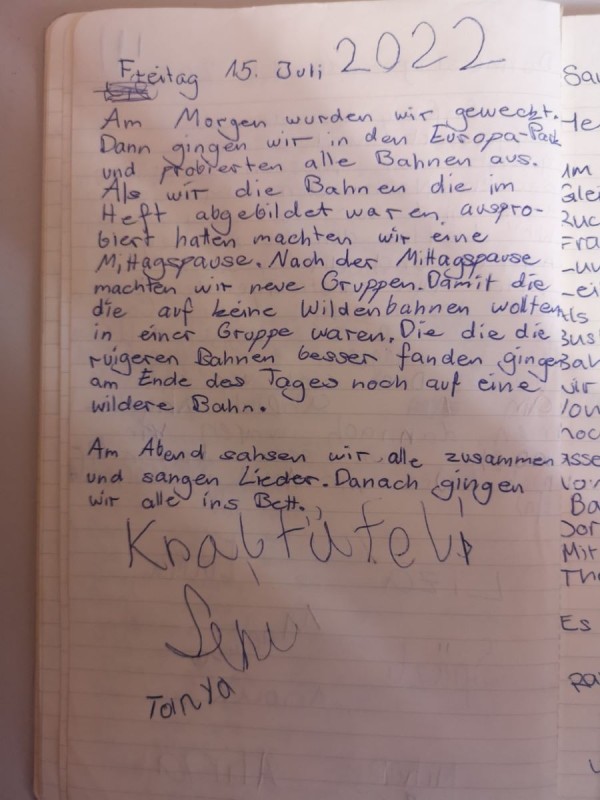 Freitag 15. Juli 2022
Am Morgen wurden wir geweckt.
Dann gingen wir in den Europa-Park
und probierten alle Bahnen aus.
Als wir die Bahnen die im
Heft abgebildet waren, auspro-
biert hatten machten wir eine
Mittagspause. Nach der Mittagspause
machten wir neue Gruppen. Damit die
die auf keine Wildenbahnen wollten
in einer Gruppe waren. Die die die
ruigeren Bahnen besser fanden gingen
am Ende des Tages noch auf eine
wildere Bahn.
Am Abend sahsen wir alle zusammen
und sangen Lieder. Danach gingen
wir alle ins Bett.
Tanya
Es